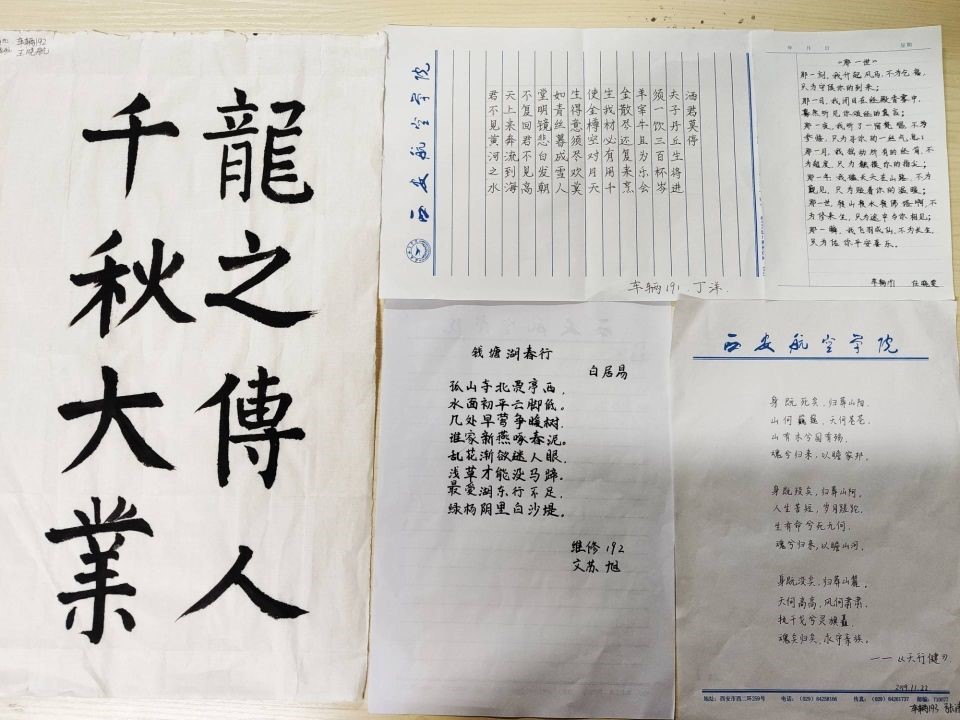 车辆192
龍之傳人
千秋大業
西安航空学院
君不见黄河之水
天上来奔流到海
不复回君不见高
堂明镜悲白发朝
如青丝暮成雪人
生得意须尽欢莫
使金樽空对月天
生我材必有用千
金散尽还复来烹
羊宰牛且为乐会
须一饮三百杯岑
夫子丹丘生将进
酒君莫停
车辆191 丁洋
年 月 日 星期
《那一世》
那一刻,我升起风马,不为乞福,
只为守候你的到来;
那一日,我闭目在经殿香雾中,
蓦然听见你颂经的真言;
那一夜,我听了一宿梵唱,不为
参悟,只为寻你的一丝气息;
那一月,我摇动所有的经筒,不
为超度,只为触摸你的指尖;
那一年,我磕长头在山路,不为
觐见,只为贴着你的温暖;
那一世,转山转水转佛塔啊,不
为修来生,只为途中与你相见;
那一瞬,我飞羽成仙,不为长生,
只为佑你平安喜乐。
车辆191
钱塘湖春行
白居易
孤山寺北贾亭西,
水面初平云脚低。
几处早莺争暖树,
谁家新燕啄春泥。
乱花渐欲迷人眼,
浅草才能没马蹄。
最爱湖东行不足,
绿杨阴里白沙堤。
维修192
文苏旭
西安航空学院
身既死矣,归葬山阳.
山何巍巍,天何苍苍.
山有木兮国有殇.
魂兮归来,以瞻家邦.
身既没矣,归葬山阿.
人生苦短,岁月蹉跎.
生有命兮死无何.
魂兮归来,以瞻山河.
身既没矣,归葬山麓.
天何高高,风何肃肃.
执干戈兮灵旗矗.
魂矣归矣,永守亲族。
——《天行健》
2019.11.22
地址:西安市西二环259号 电话:(029)84258166 传真:(029)84261737 邮编:710077
车辆193